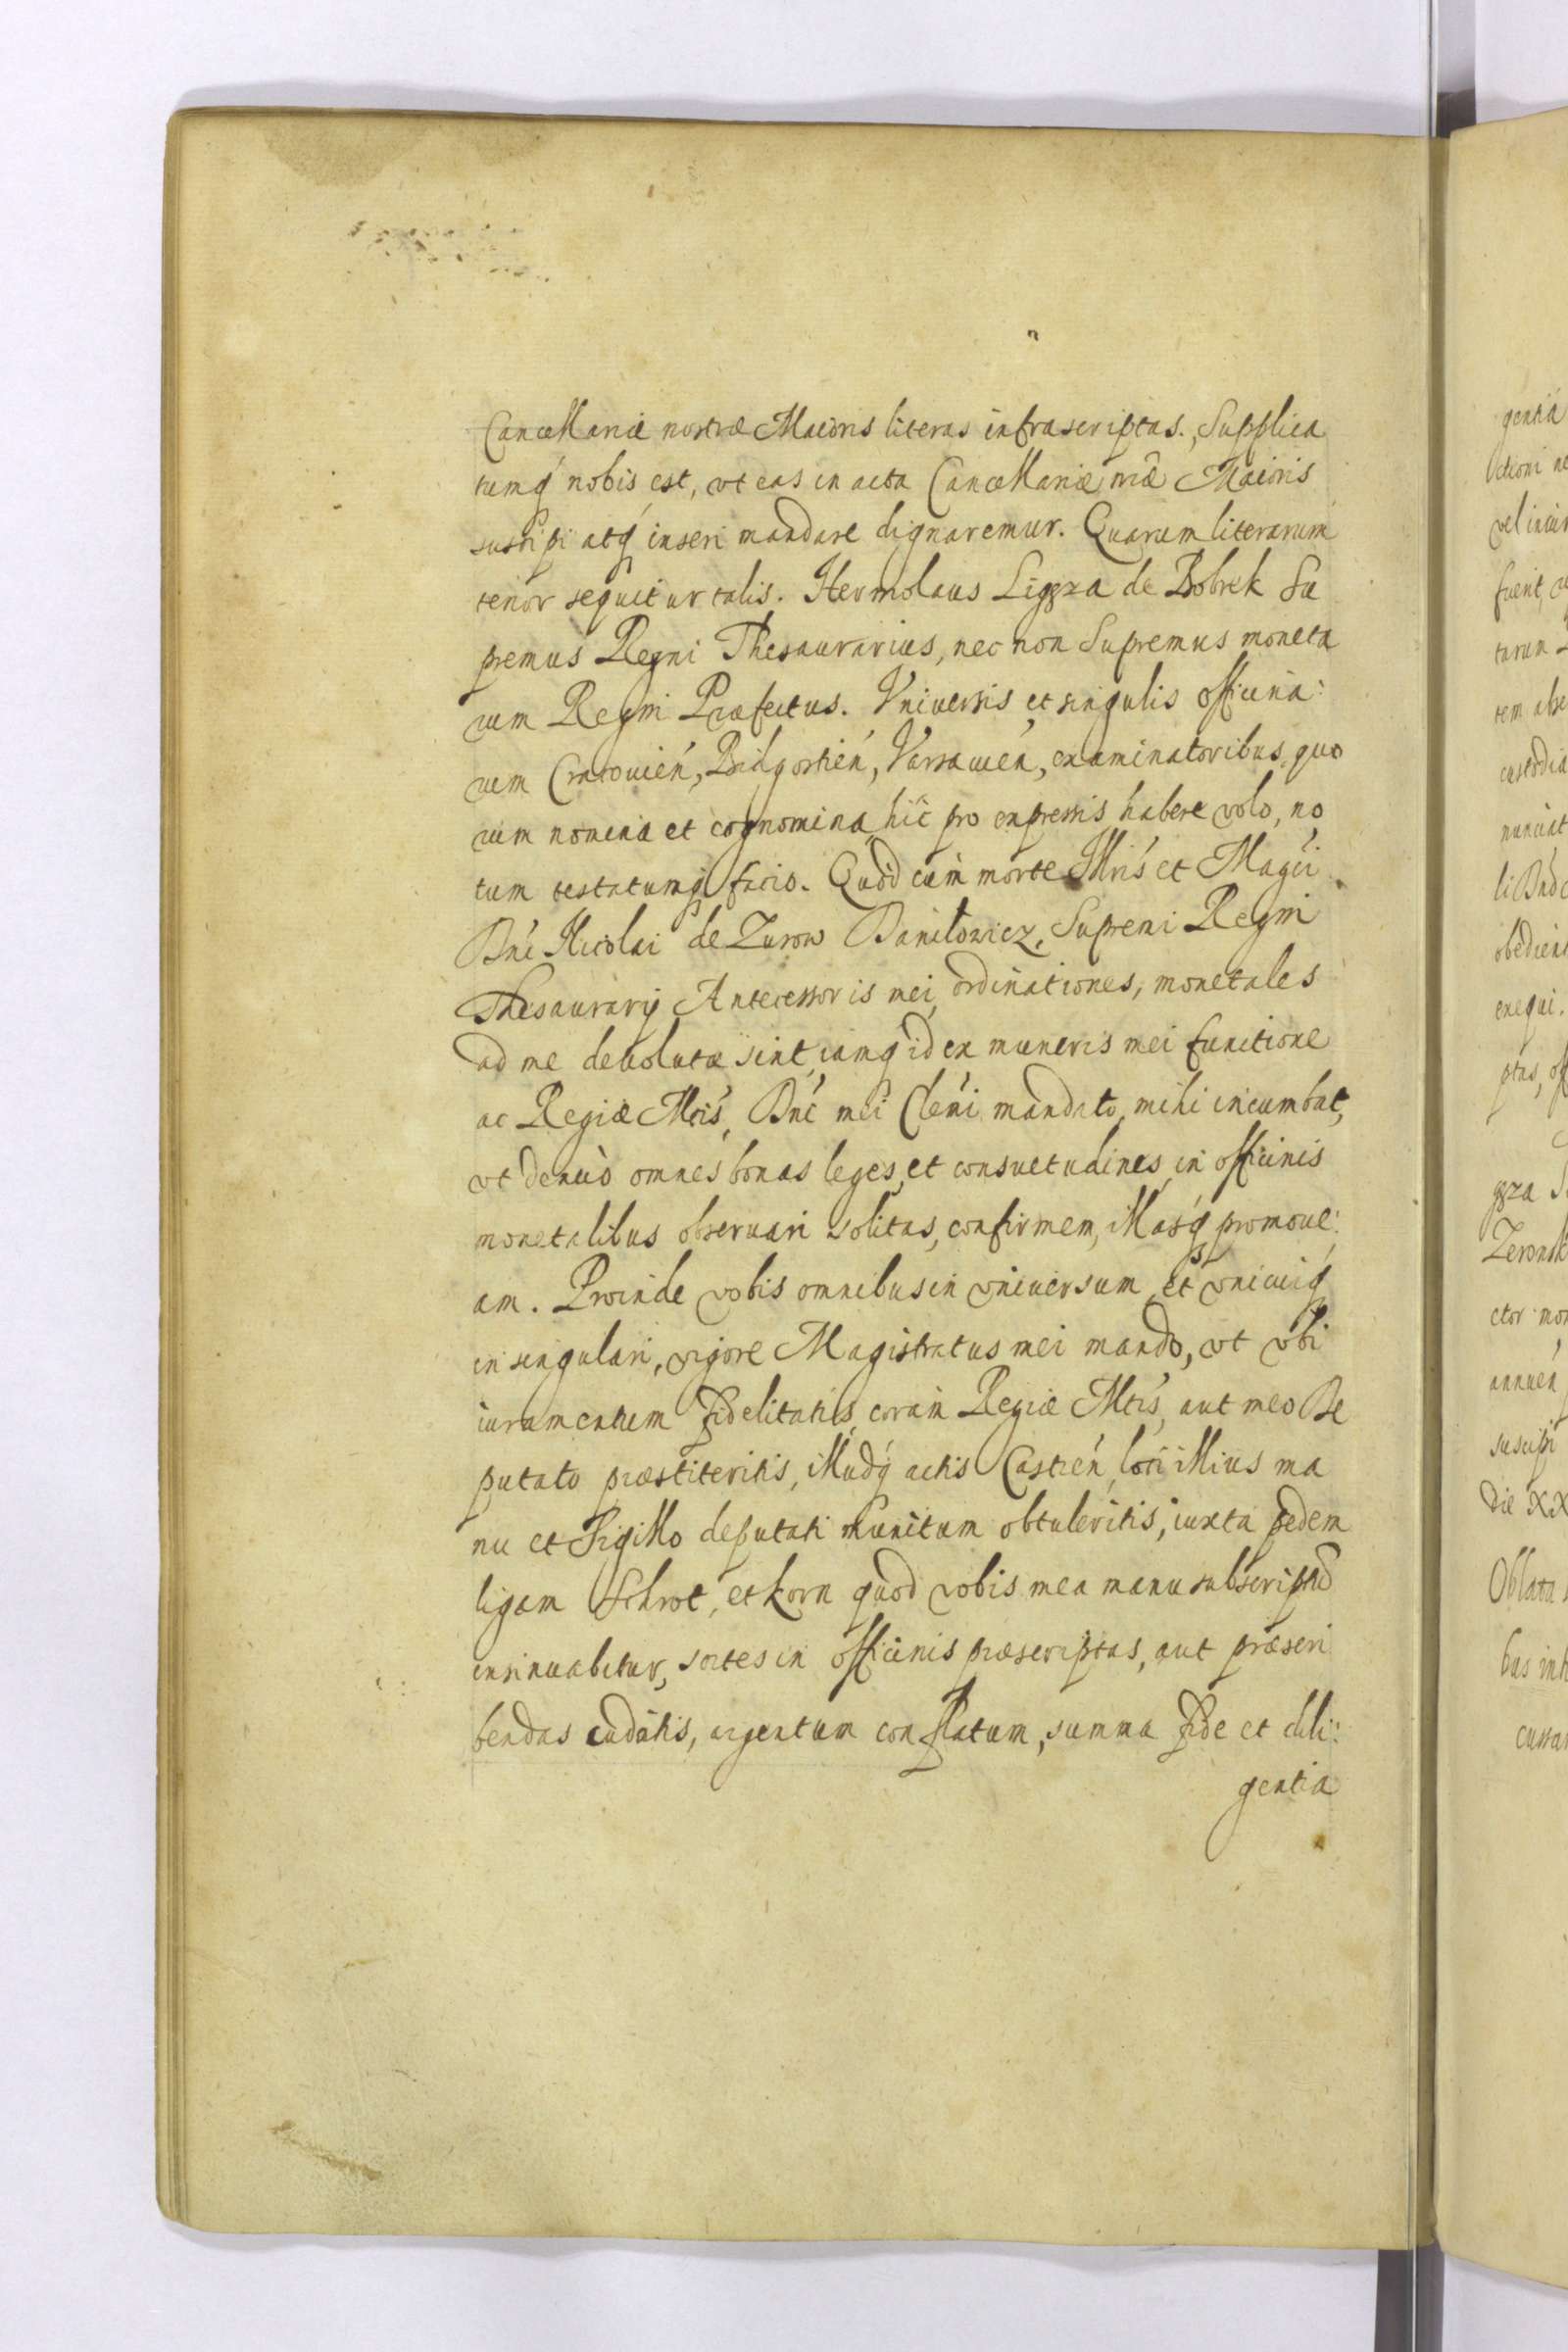 Cancellariæ nostræ Maioris literas infrascriptas., Supplica
tumq́ nobis est, vt eas in acta Cancellariæ nr̃æ Maioris
suscipi atq́ inseri mandare dignaremur. Quarum literarum
tenor sequitur talis. Hermolaus Ligęza de Bobrek Su
premus Regni Thesaurarius, nec non Supremus moneta
rum Regni Præfectus. Vniuersis et singulis officina:
rum Cracouień, Bidgostień, Varsauień, examinatoribus, quo
rum nomina et cognomina hic pro expressis habere volo, no
tum testatumq́ facio. Quòd cùm morte Illris et Magci
Dńi Nicolai de Zurow Daniłowicz, Supremi Regni
Thesaurarij Antecessoris mei, ordinationes, monetales
ad me deuolutæ sint, iamq́ id ex muneris mei functione
ac Regiæ Mtis, Dńi mei Cleḿi mandato, mihi incumbat,
vt denuò omnes bonas leges, et consuetudines, in officinis
monetalibus obseruari solitas, confirmem, illasq́ promoue:
am. Proinde vobis omnibus in vniuersum, et vnicuiq́
in singulari, vigore Magistratus mei mando, vt vbi
iuramentum fidelitatis, coram Regiæ Mtis, aut meo De
putato præstiteritis, illudq́ actis Castreń, loci illius ma
nu et Sigillo deputati munitum obtuleritis, iuxta pedem
ligam Schrot, et korn quod vobis mea manu subscriptũ
insinuabitur, sortes in officinis præscriptas, aut præscri
bendas cudatis, argentum conflatum, summa fide et dili:
gentia
gentia
vel incur
custodia
nunciat
exequi.
ptas, of
gęza S
Zeronsk
ctor mon
annuen
suscipi
Die XX
Oblata
bus inh